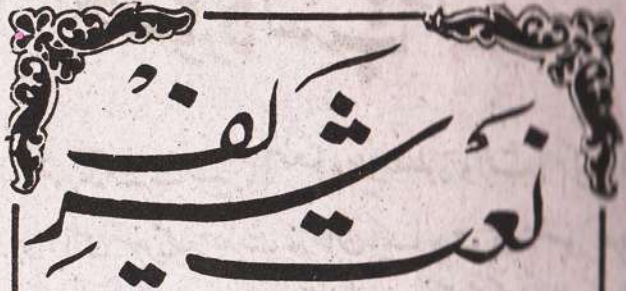 نَعت شَرِیفْ